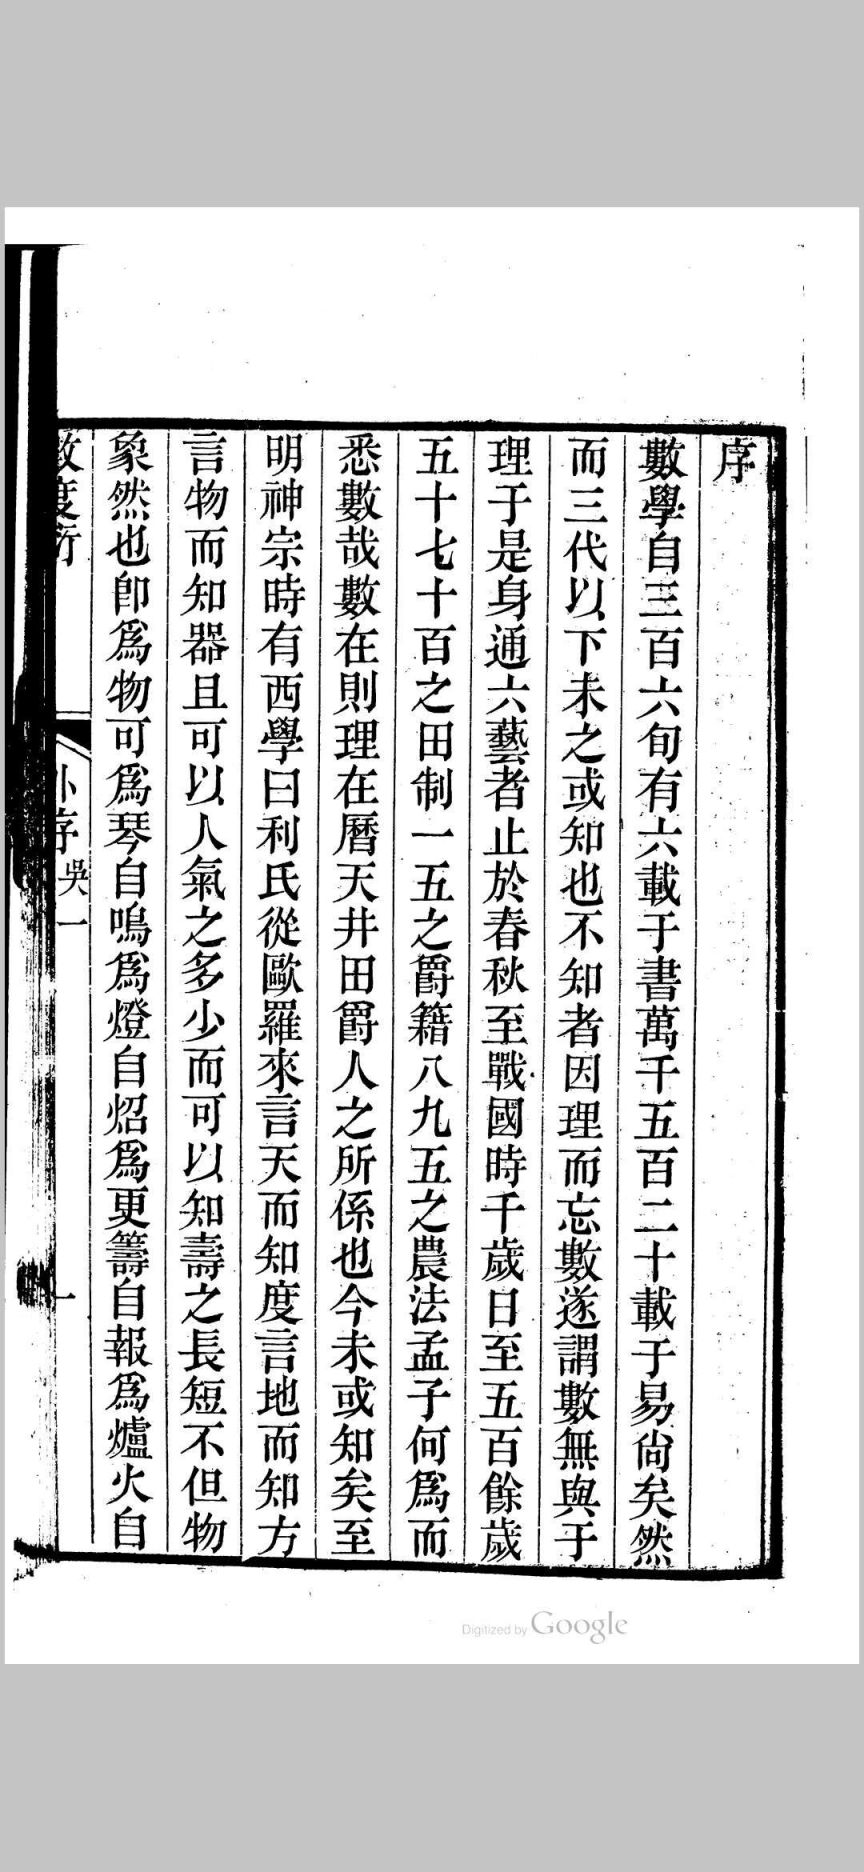 序
數學自三百六旬有六載于書萬千五百二十載于易尙矣然
而三代以下未之或知也不知者因理而忘數遂謂數無與于
理于是身通六藝者止於春秋至戰國時千歲日至五百餘歲
五十七十百之田制一五之爵籍八九五之農法孟子何爲而
悉數哉數在則理在曆天井田爵人之所係也今未或知矣至
明神宗時有西學曰利氏從歐羅來言天而知度言地而知方
言物而知器且可以人氣之多少而可以知壽之長短不但物
象然也卽爲物可爲琴自鳴爲燈自炤爲更籌自報爲爐火自
數度衍 外序 吳一 一
Digitized by Google